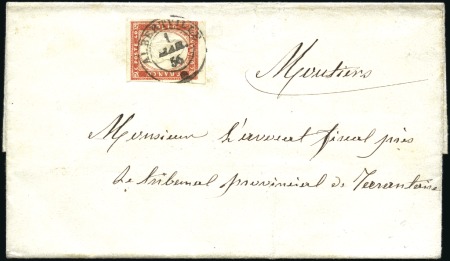 ALBERTVILLE
1
MAR
56
FRANCO
Moutiers
Monsieur L'avocat fiscal près
Le tribunal provincial de Tarantaise